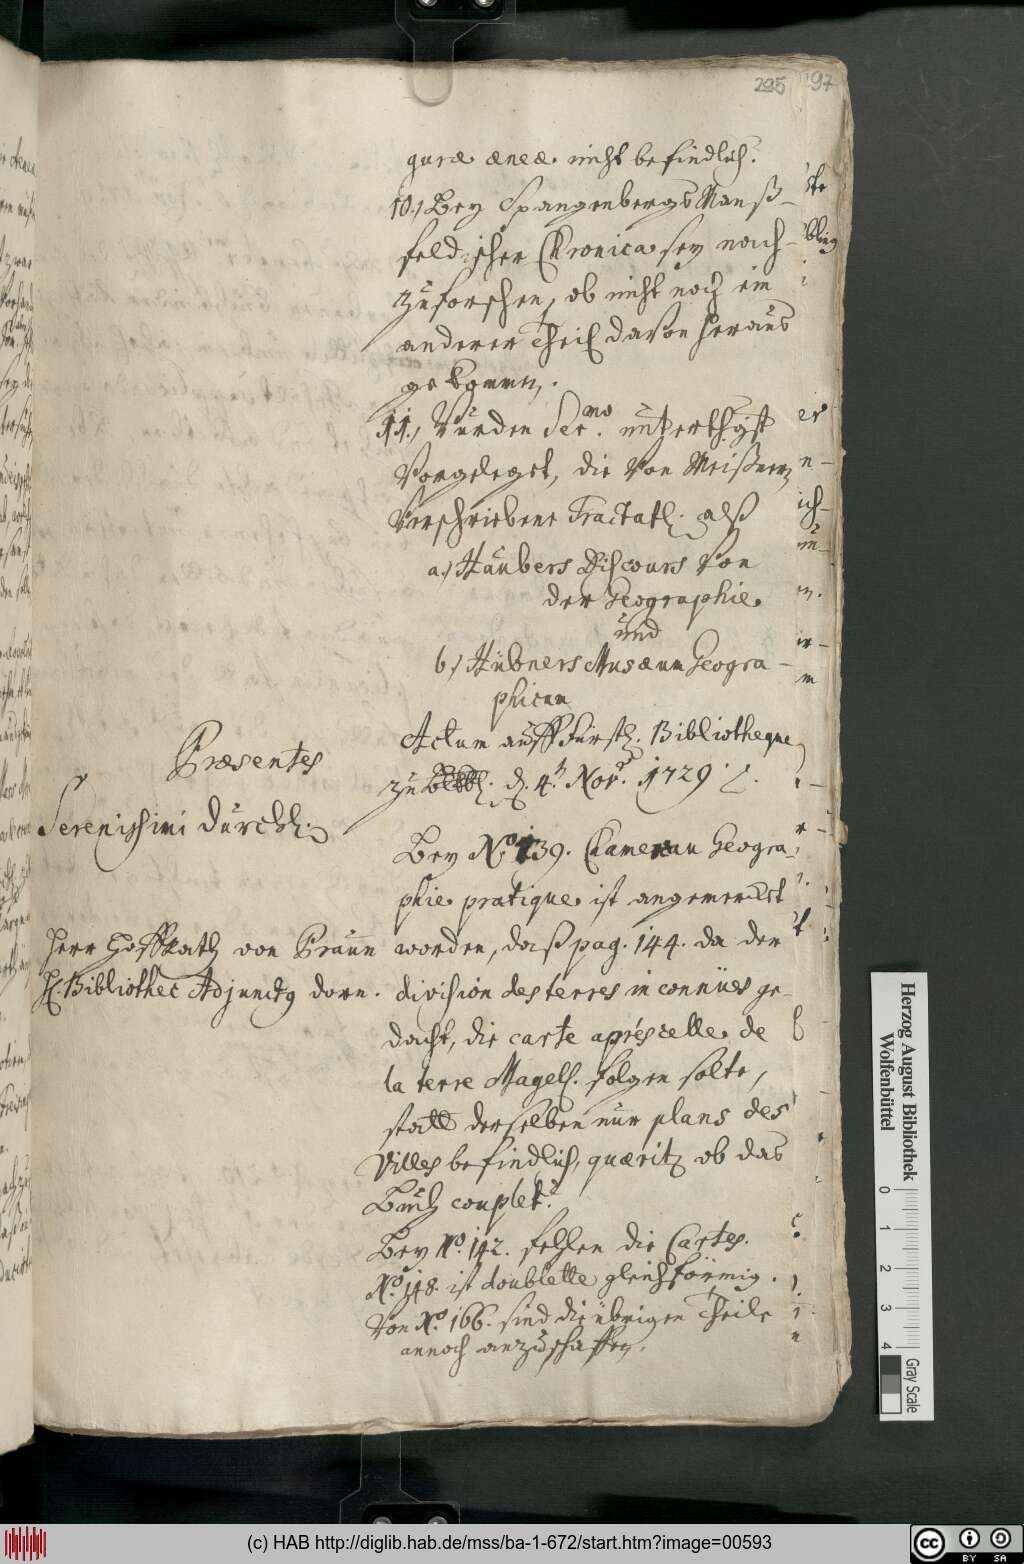 295 97
guræ æneæ nicht befindlich.
10.) Bey Spangenbergs Manß-
feldischer Chronica sey nach-
zuforschen, ob nicht noch ein
anderer Theil davon heraus
gekommen.
11.) Wurden Ser.mo unterthgst
vorgeleget, die von Meißnern
verschriebene Tractatl. alß
a.) Haubers Discours von
der Geographie
und
b.) Hübners Musæum Geogra-
phicum
Actum auff Fürstl. Bibliotheque
zu d. 4.t Novr. 1729.
Præsentes
Serenissimi Durchl.
Herr Hoffrath von Praun
H. Bibliothec Adjunctg Dorn.
Bey No. 139. Chamereau Geogra-
phie pratique ist angemerckt
worden, daß pag. 144. da der
division des terres inconnües ge-
dacht, die carte aprés celle de
la terre Magell. folgen solte,
statt derselben nur plans des
Villes befindlich, quærit ob das
Buch complet?
Bey No. 142. fehlen die Cartes.
No. 148. ist doublette gleichförmig.
Von No. 166. sind die übrigen Theile
annoch anzuschaffen.
Herzog August Bibliothek
Wolfenbüttel
0 1 2 3 4
Gray Scale
(c) HAB http://diglib.hab.de/mss/ba-1-672/start.htm?image=00593
cc BY SA